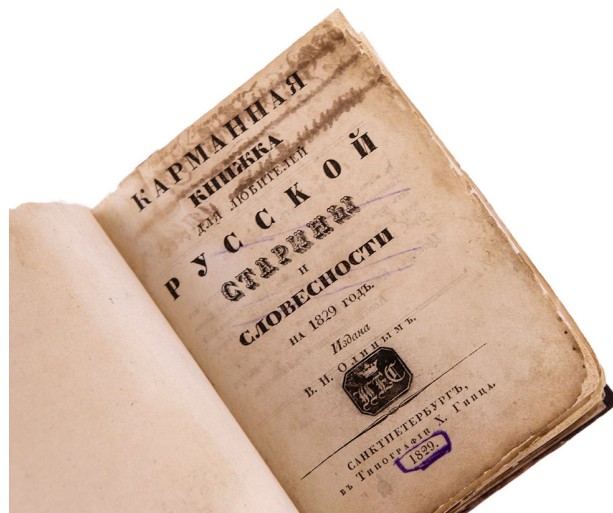 КАРМАННАЯ
КНИЖКА
ДЛЯ ЛЮБИТЕЛЕЙ
РУССКОЙ
СТАРИНЫ
И
СЛОВЕСНОСТИ
НА 1829 ГОДЪ.
Издана
В. Н. Олинымъ.
САНКТПЕТЕРБУРГЪ,
въ Типографіи Х. Гинца.
1829.